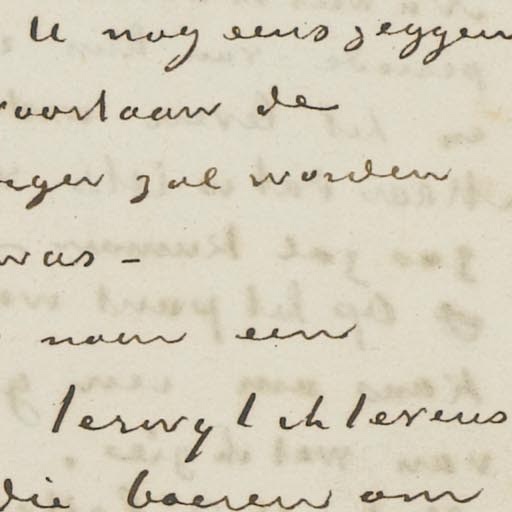 U nog eens zeggen
voortaan de
iger zal worden
was –
naar een
terwyl ik tevens
die boeren om